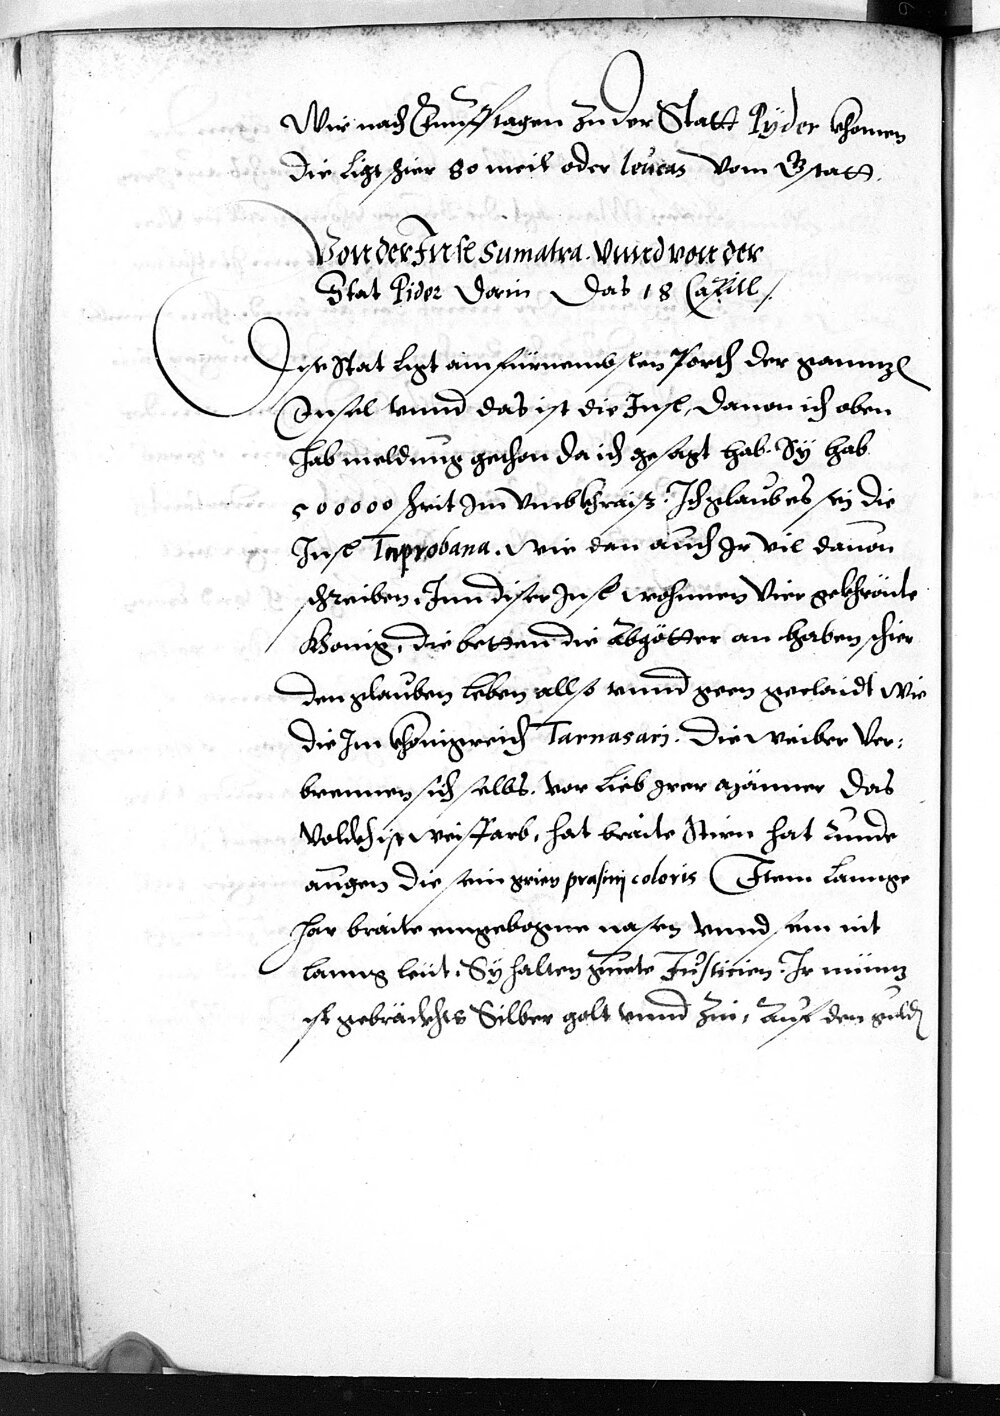 Wir nach Fünff tagen zu der Statt Pÿder khomen
die ligt hier 80 meil oder leucas vom Gstatt.
Von der Insel Sumatra. Vnnd von der
Stat Pider darin Das 18 Capitl.
Dise Stat ligt am fürnembsten Porth der ganntzen
Insel vnnd das ist die Insl, dauon ich oben
hab meldung gethon da ich gesagt hab. Sy hab
500000 schrit Im Vmbkhraiß. Ich glaub es seÿ die
Insl Taprobana. wie dan auch Ir vil dauon
schreiben. Inn diser Insl wohnnen Vier gekhrönte
König, die betten die Abgötter an haben schier
den glauben leben allso vnnd geen geclaidt wie
die Im khönigreich Tarnasarj. Die weiber Ver-
brennen sich selbs. vor lieb Irer männer Das
Volckh ist weißfarb, hat braite Stirn hat runde
augen die sein grien prasinj coloris Item lannge
har braite eingebogne nasen vnnd sein nit
lanng leüt. Sy halten guete Justicien. Ir münz
ist gebrächts Silber golt vnnd Zin, Auf den guld